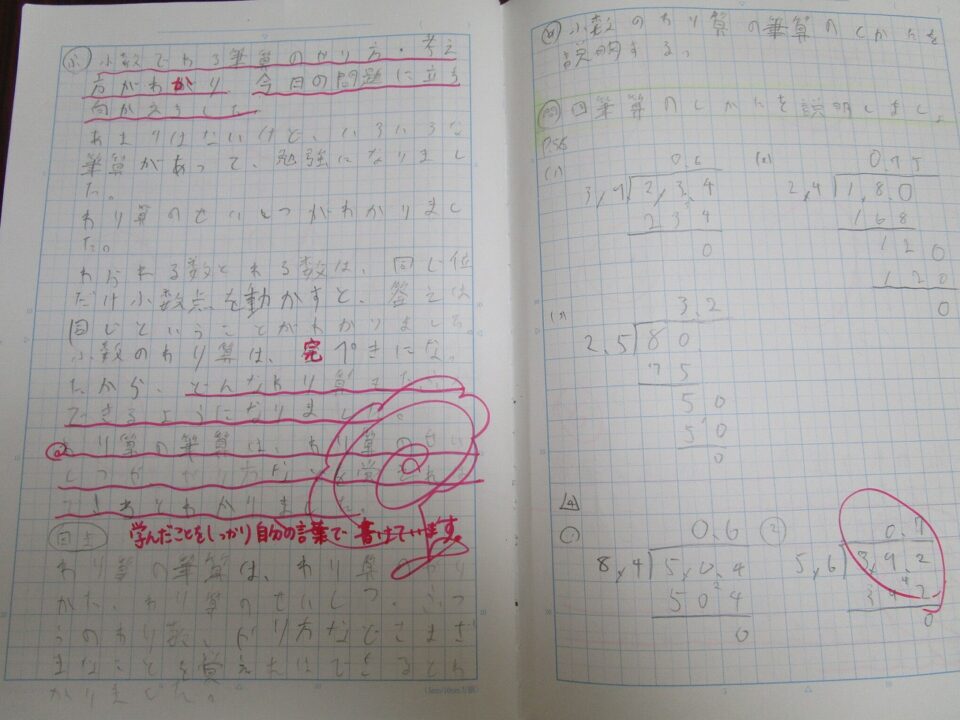 ふ 小数でわる筆算のやり方・考え
方がわかり 今日の問題に立ち
向かえました
あまりはないけど、いろいろな
筆算があって、勉強になりまし
た。
わり算のせいしつがわかりまし
た。
わられる数とわる数は、同じ位
だけ小数点を動かすと、答えは
同じということがわかりました
小数のわり算は、完ぺきにな
たから、どんなわり算でも
できるようになりました。
わり算の筆算は、わり算のせい
わかりました。
学んだことをしっかり自分の言葉で書けています。
わり算の筆算は、わり算のやり
かた、わり算のせいしつ、ふつ
うのわり算、やり方などさまざ
まなことを覚えればできるとわ
かりました。
め 小数のわり算の筆算のしかたを
説明する。
問 筆算のしかたを説明しましょ
P56
(1) 0.6 (2) 0.75
3,9 2,3.4 2,4 1,8.0
234 168
0 120
120
0
(3) 3.2
2.5 80
75
50
50
0
4
① 0.6 ② 0.7
8,4 5,0.4 5,6 3,9.2
504 392
0 0